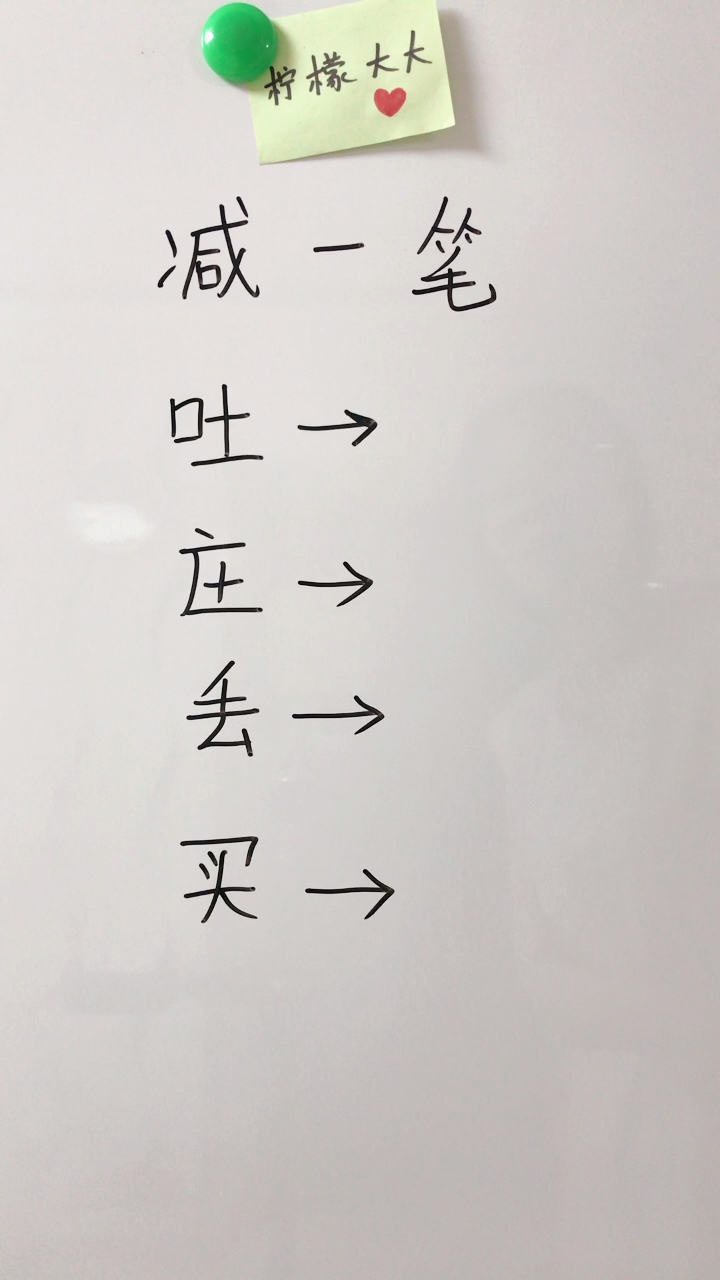 柠檬大大
减一笔
吐→
庄→
丢→
买→